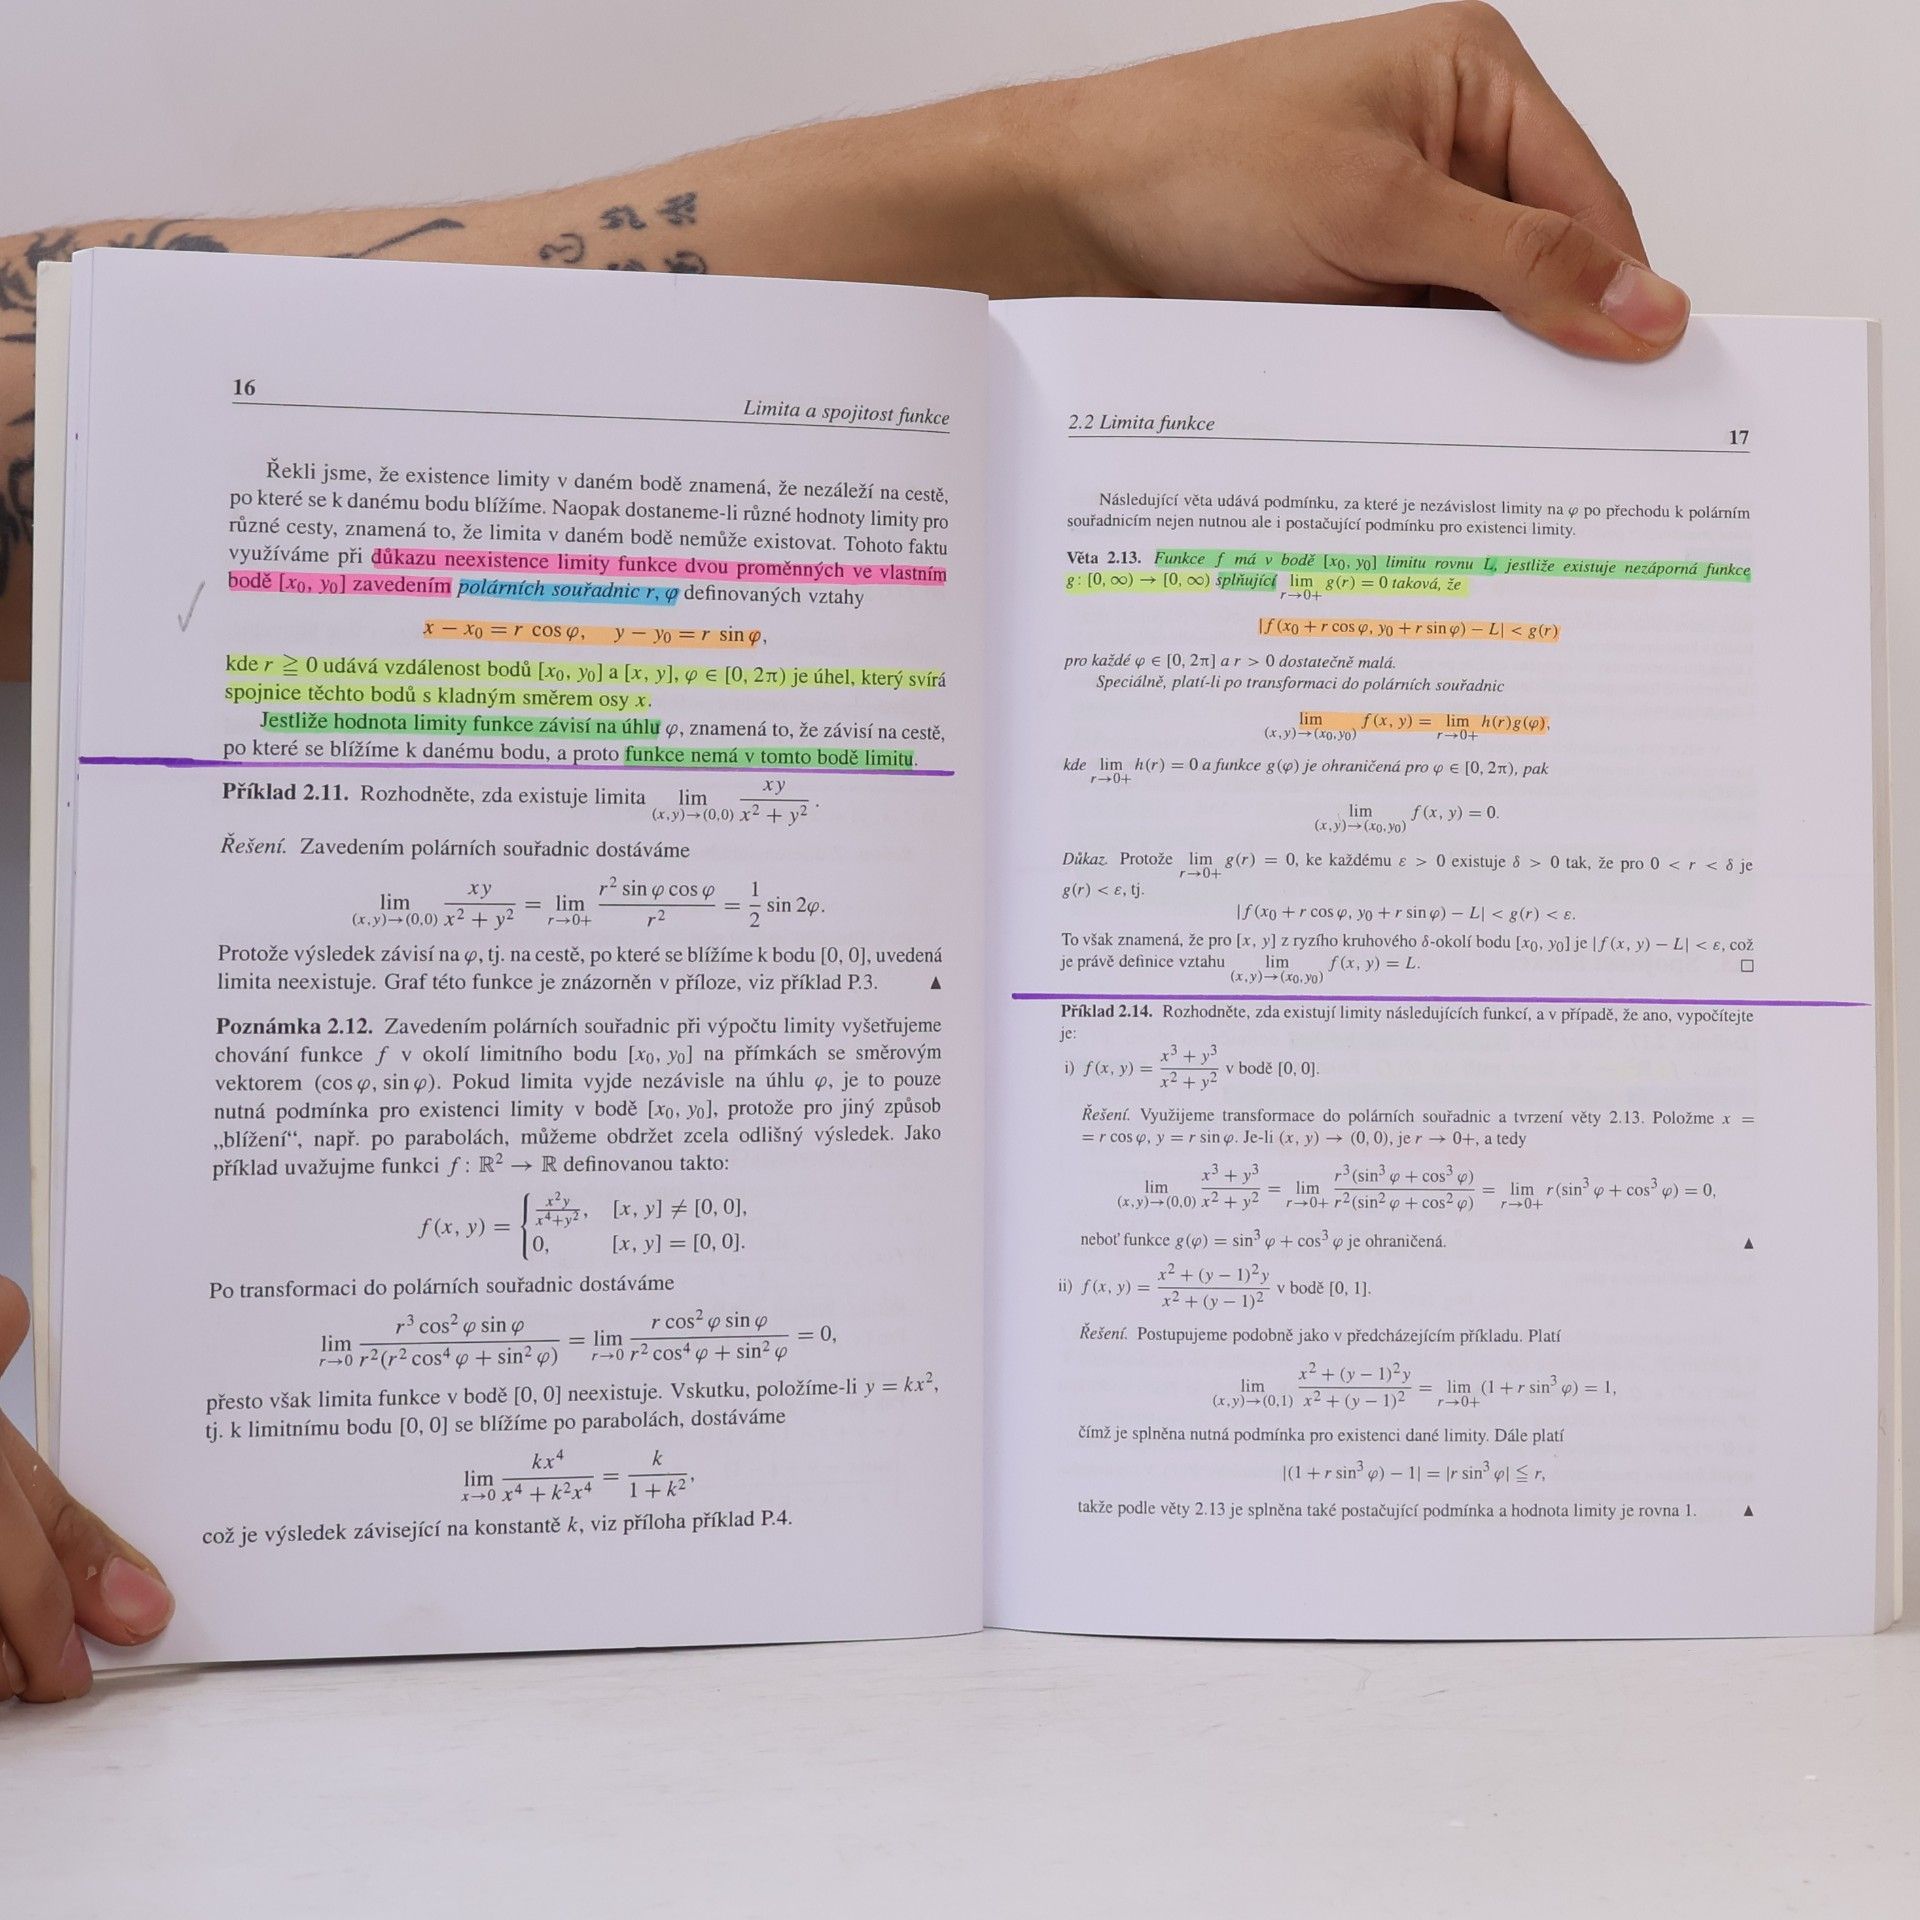 16
Limita a spojitost funkce
Řekli jsme, že existence limity v daném bodě znamená, že nezáleží na cestě,
po které se k danému bodu blížíme. Naopak dostaneme-li různé hodnoty limity pro
různé cesty, znamená to, že limita v daném bodě nemůže existovat. Tohoto faktu
využíváme při důkazu neexistence limity funkce dvou proměnných ve vlastním
bodě [x₀, y₀] zavedením polárních souřadnic r, φ definovaných vztahy
x − x₀ = r cos φ, y − y₀ = r sin φ,
kde r ≧ 0 udává vzdálenost bodů [x₀, y₀] a [x, y], φ ∈ [0, 2π) je úhel, který svírá
spojnice těchto bodů s kladným směrem osy x.
Jestliže hodnota limity funkce závisí na úhlu φ, znamená to, že závisí na cestě,
po které se blížíme k danému bodu, a proto funkce nemá v tomto bodě limitu.
Příklad 2.11. Rozhodněte, zda existuje limita lim_{(x,y)→(0,0)} xy/(x² + y²).
Řešení. Zavedením polárních souřadnic dostáváme
lim_{(x,y)→(0,0)} xy/(x² + y²) = lim_{r→0+} (r² sin φ cos φ)/r² = 1/2 sin 2φ.
Protože výsledek závisí na φ, tj. na cestě, po které se blížíme k bodu [0, 0], uvedená
limita neexistuje. Graf této funkce je znázorněn v příloze, viz příklad P.3. ▲
Poznámka 2.12. Zavedením polárních souřadnic při výpočtu limity vyšetřujeme
chování funkce f v okolí limitního bodu [x₀, y₀] na přímkách se směrovým
vektorem (cos φ, sin φ). Pokud limita vyjde nezávisle na úhlu φ, je to pouze
nutná podmínka pro existenci limity v bodě [x₀, y₀], protože pro jiný způsob
„blížení“, např. po parabolách, můžeme obdržet zcela odlišný výsledek. Jako
příklad uvažujme funkci f : ℝ² → ℝ definovanou takto:
f(x, y) = { x²y/(x⁴+y²), [x, y] ≠ [0, 0],
0, [x, y] = [0, 0].
Po transformaci do polárních souřadnic dostáváme
lim_{r→0} (r³ cos² φ sin φ)/(r²(r² cos⁴ φ + sin² φ)) = lim_{r→0} (r cos² φ sin φ)/(r² cos⁴ φ + sin² φ) = 0,
přesto však limita funkce v bodě [0, 0] neexistuje. Vskutku, položíme-li y = kx²,
tj. k limitnímu bodu [0, 0] se blížíme po parabolách, dostáváme
lim_{x→0} kx⁴/(x⁴ + k²x⁴) = k/(1 + k²),
což je výsledek závisející na konstantě k, viz příloha příklad P.4.
2.2 Limita funkce
17
Následující věta udává podmínku, za které je nezávislost limity na φ po přechodu k polárním
souřadnicím nejen nutnou ale i postačující podmínku pro existenci limity.
Věta 2.13. Funkce f má v bodě [x₀, y₀] limitu rovnu L, jestliže existuje nezáporná funkce
g: [0, ∞) → [0, ∞) splňující lim_{r→0+} g(r) = 0 taková, že
|f(x₀ + r cos φ, y₀ + r sin φ) − L| < g(r)
pro každé φ ∈ [0, 2π] a r > 0 dostatečně malá.
Speciálně, platí-li po transformaci do polárních souřadnic
lim_{(x,y)→(x₀,y₀)} f(x, y) = lim_{r→0+} h(r)g(φ),
kde lim_{r→0+} h(r) = 0 a funkce g(φ) je ohraničená pro φ ∈ [0, 2π), pak
lim_{(x,y)→(x₀,y₀)} f(x, y) = 0.
Důkaz. Protože lim_{r→0+} g(r) = 0, ke každému ε > 0 existuje δ > 0 tak, že pro 0 < r < δ je
g(r) < ε, tj.
|f(x₀ + r cos φ, y₀ + r sin φ) − L| < g(r) < ε.
To však znamená, že pro [x, y] z ryzího kruhového δ-okolí bodu [x₀, y₀] je |f(x, y) − L| < ε, což
je právě definice vztahu lim_{(x,y)→(x₀,y₀)} f(x, y) = L. □
Příklad 2.14. Rozhodněte, zda existují limity následujících funkcí, a v případě, že ano, vypočítejte
je:
i) f(x, y) = (x³ + y³)/(x² + y²) v bodě [0, 0].
Řešení. Využijeme transformace do polárních souřadnic a tvrzení věty 2.13. Položme x =
= r cos φ, y = r sin φ. Je-li (x, y) → (0, 0), je r → 0+, a tedy
lim_{(x,y)→(0,0)} (x³ + y³)/(x² + y²) = lim_{r→0+} r³(sin³ φ + cos³ φ)/(r²(sin² φ + cos² φ)) = lim_{r→0+} r(sin³ φ + cos³ φ) = 0,
neboť funkce g(φ) = sin³ φ + cos³ φ je ohraničená. ▲
ii) f(x, y) = (x² + (y − 1)²y)/(x² + (y − 1)²) v bodě [0, 1].
Řešení. Postupujeme podobně jako v předcházejícím příkladu. Platí
lim_{(x,y)→(0,1)} (x² + (y − 1)²y)/(x² + (y − 1)²) = lim_{r→0+} (1 + r sin³ φ) = 1,
čímž je splněna nutná podmínka pro existenci dané limity. Dále platí
|(1 + r sin³ φ) − 1| = |r sin³ φ| ≦ r,
takže podle věty 2.13 je splněna také postačující podmínka a hodnota limity je rovna 1. ▲